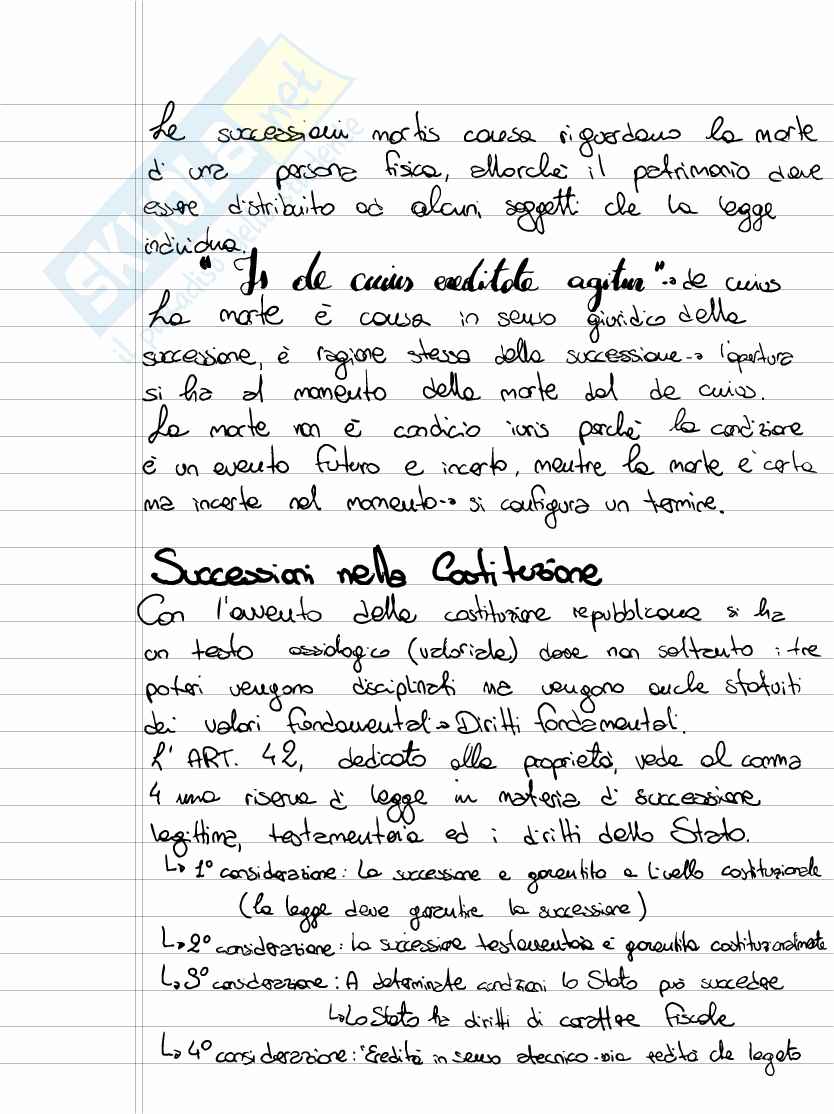 SKUOLA.net
il paradiso dello studente
Le successioni mortis causa riguardano la morte
di una persona fisica, allorchè il patrimonio deve
essere distribuito ad alcuni soggetti che la legge
individua.
"Is de cuius ereditate agitur" → de cuius
La morte è causa in senso giuridico della
successione, è ragione stessa della successione → l'apertura
si ha al momento della morte del de cuius.
La morte non è condicio iuris perchè la condizione
è un evento futuro e incerto, mentre la morte è certa
ma incerta nel momento → si configura un termine.
Successioni nella Costituzione
Con l'avvento della costituzione repubblicana si ha
un testo assiologico (valoriale) dove non soltanto i tre
poteri vengono disciplinati ma vengono anche statuiti
dei valori fondamentali → Diritti fondamentali.
L'ART. 42, dedicato alla proprietà, vede al comma
4 una riserva di legge in materia di successione
legittima, testamentaria ed i diritti dello Stato.
↳ 1° considerazione: La successione è garantita a livello costituzionale
(la legge deve garantire la successione)
↳ 2° considerazione: la successione testamentaria è garantita costituzionalmente
↳ 3° considerazione: A determinate condizioni lo Stato può succedere
↳ Lo Stato ha diritti di carattere fiscale
↳ 4° considerazione: "Eredità in senso atecnico - sia eredità che legato